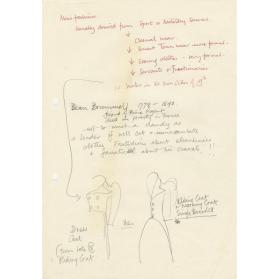 Men's fashion
Usually derived from Sport or Military Services
Casual wear
Smart Town wear more formal.
Evening clothes - very formal.
Servants & Functionaries
Beau Brummel 1778 - 1840.
friend of Prince Regent
died in poverty in France
not so much a dandy as
a leader of well cut & immaculate
clothing Fastidious about cleanliness
& fanatical about his cravat !!!
Dress
Coat
from 18
Riding Coat
Riding Coat
Morning Coat